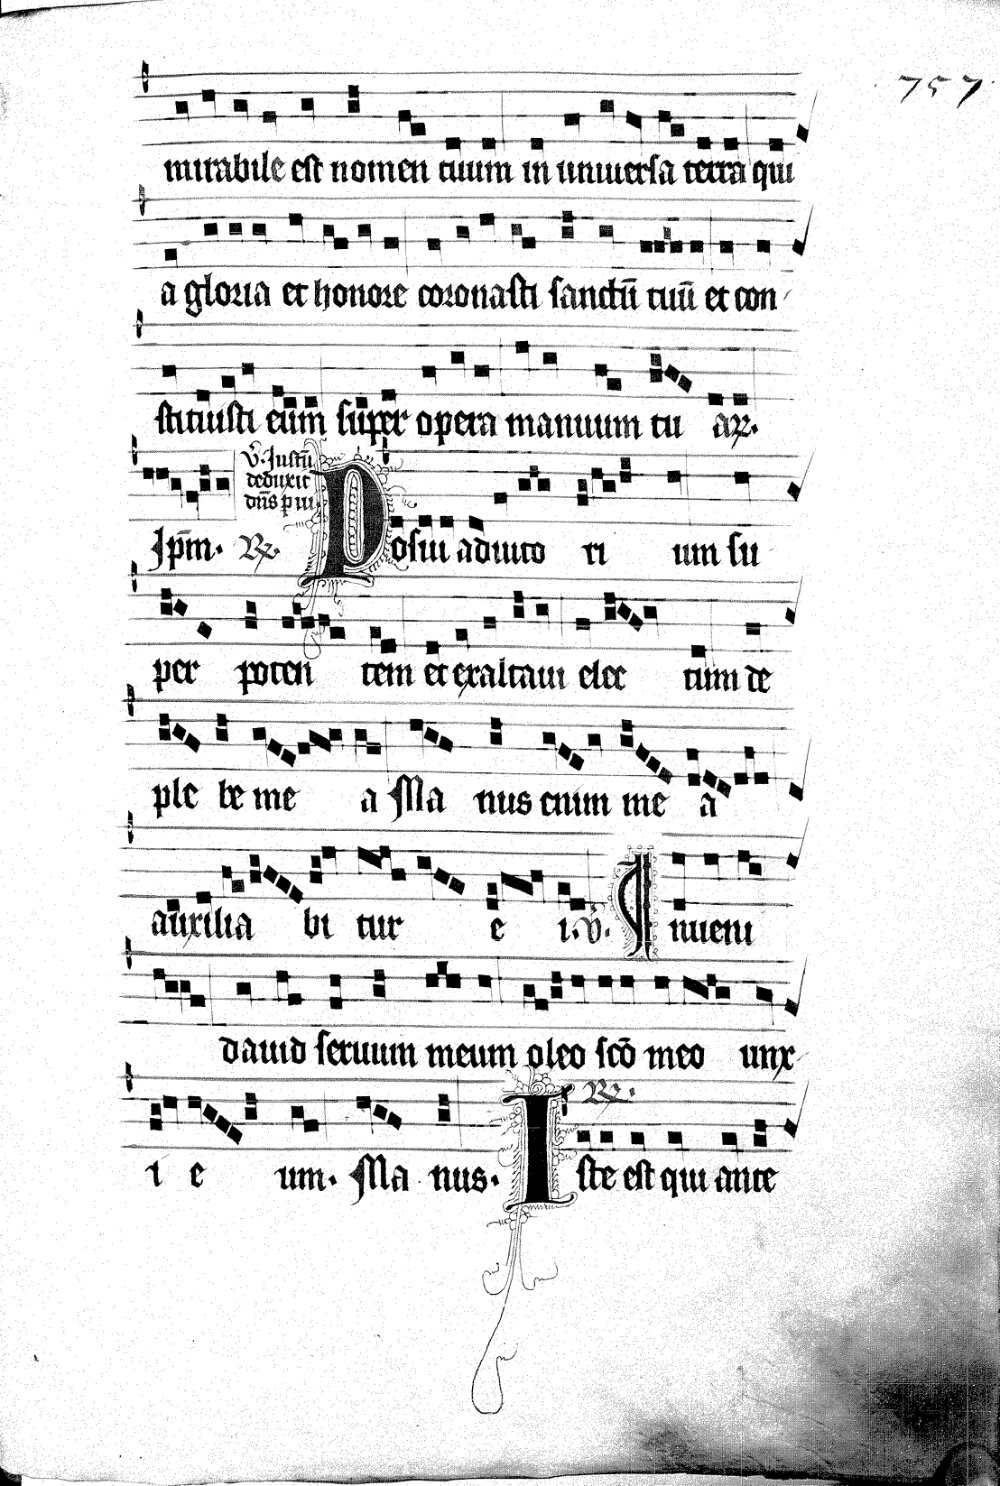 757
mirabile est nomen tuum in uniuersa terra qui
a gloria et honore coronasti sanctū tuū et con
stituisti eum super opera manuum tu aꝝ.
V̄. Iustū
deduxit
dn̄s p ui
Ip̄m. R. Posui adiuto ri um su
per poten tem et exaltaui elec tum de
ple be me a Ma nus enim me a
auxilia bi tur e i. V̄. Inueni
dauid seruum meum oleo scō meo unx
i e um. Ma nus. R. Iste est qui ante